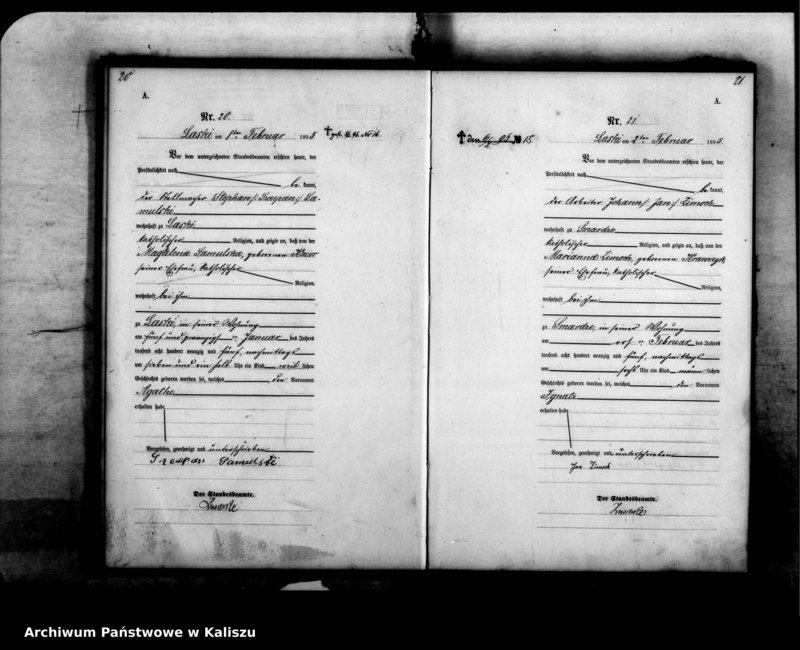 20
A.
Nr. 20.
Laski am 1ten Februar 1895.
† gest. No 16
Vor dem unterzeichneten Standesbeamten erschien heute, der
Persönlichkeit nach
be kannt,
der Stellmacher Stephan /: Szczepan :/ Sa-
mulski
wohnhaft zu Laski
katholischer Religion, und zeigte an, daß von der
Magdalena Samulska, geborenen
seiner Ehefrau, katholischer
Religion,
wohnhaft bei ihm
zu Laski, in seiner Wohnung
am fünf und zwanzigsten Januar des Jahres
tausend acht hundert neunzig und fünf, nachmittags
um sieben und ein halb Uhr ein Kind weib lichen
Geschlechts geboren worden sei, welches den Vornamen
Agathe
erhalten habe
Vorgelesen, genehmigt und unterschrieben
Szczepan Samulski
Der Standesbeamte.
21
A.
Nr. 21.
Laski am 2ten Februar 1895.
† den 02 No 18.
Vor dem unterzeichneten Standesbeamten erschien heute, der
Persönlichkeit nach
be kannt,
der Arbeiter Johann /: Jan :/ Zimoch
wohnhaft zu Smardze
katholischer Religion, und zeigte an, daß von der
Marianna Zimoch, geborenen Krawczyk
seiner Ehefrau, katholischer
Religion,
wohnhaft bei ihm
zu Smardze, in seiner Wohnung
am ersten Februar des Jahres
tausend acht hundert neunzig und fünf, nachmittags
um sechs Uhr ein Kind männ lichen
Geschlechts geboren worden sei, welches den Vornamen
Ignatz
erhalten habe
Vorgelesen, genehmigt und unterschrieben
Jan Zimoch
Der Standesbeamte.
Archiwum Państwowe w Kaliszu